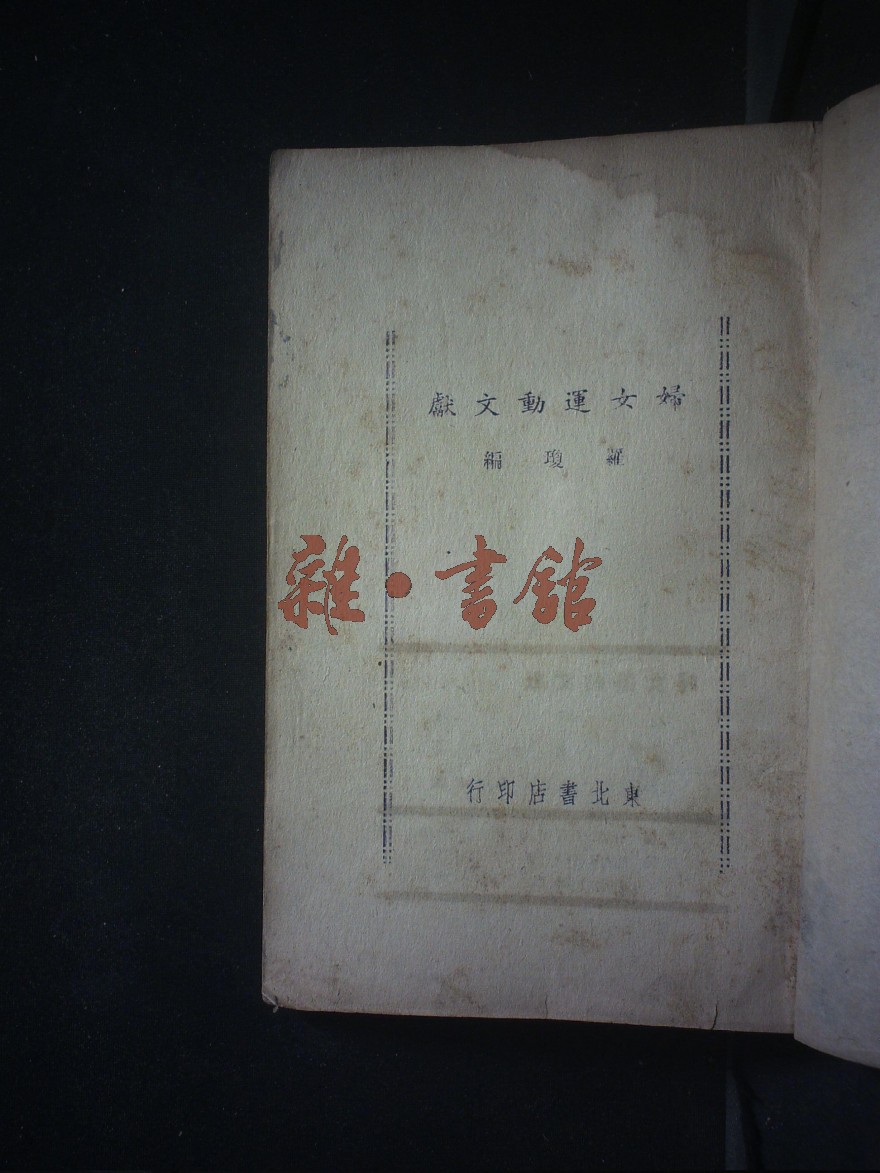 婦女運動文獻
羅瓊編
雜·書館
東北書店印行